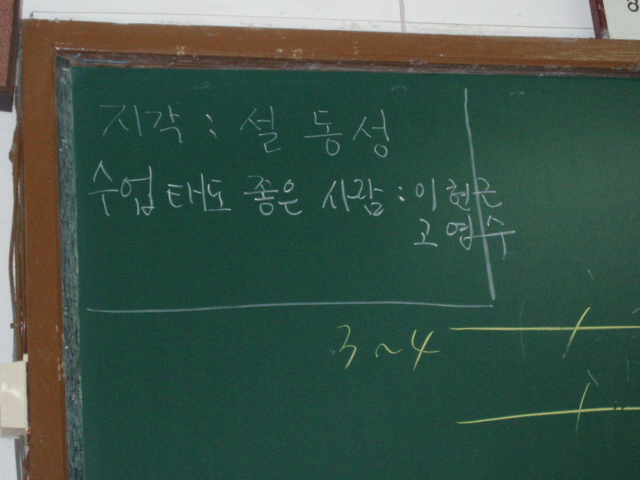 지각 : 설동성
수업 태도 좋은 사람 : 이현근
고영수
3~4